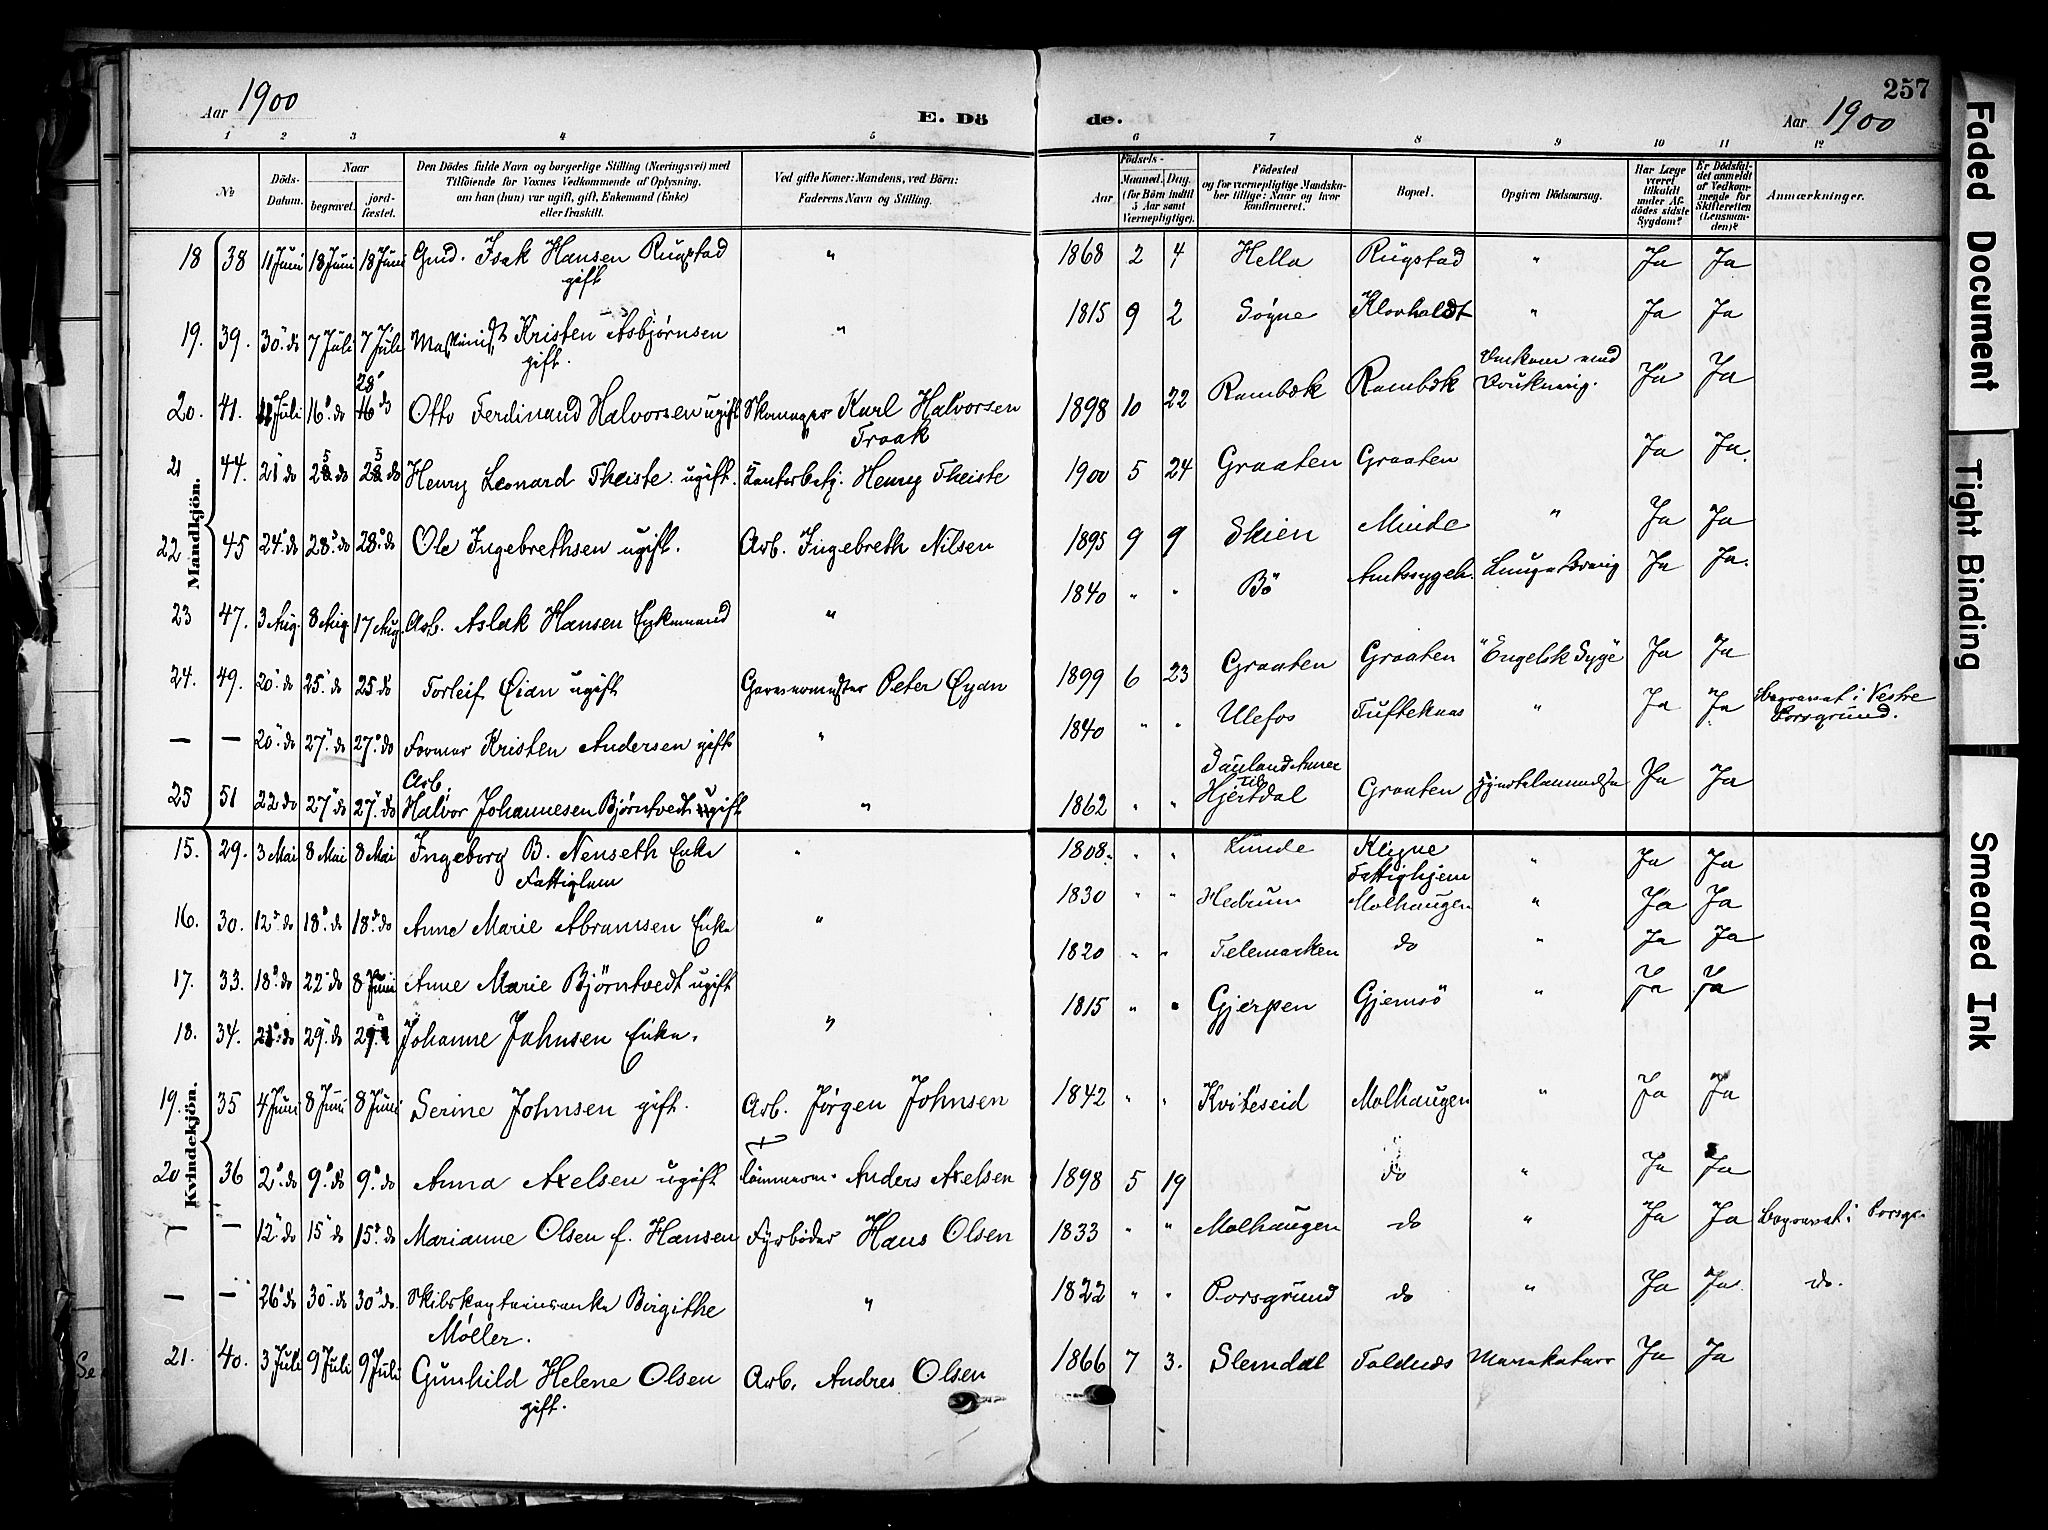 257
Aar 1900
E. Dö de.
Aar 1900
1 2 3 4 5 6 7 8 9 10 11 12
No
Döds-Datum.
Naar
begravet.
jordfæstet.
Den Dödes fulde Navn og borgerlige Stilling (Næringsvei) med
Tilföiende for Voxnes Vedkommende af Oplysning,
om han (hun) var ugift, gift, Enkemand (Enke)
eller fraskilt.
Ved gifte Koner: Mandens, ved Börn:
Faderens Navn og Stilling.
Födsels-
Aar
Maaned. Dag.
(for Börn indtil
5 Aar samt
Værnepligtige).
Födested
og for værnepligtige Mandskaber tillige: Naar og hvor
konfirmeret.
Bopæl.
Opgiven Dödsaarsag.
Har Læge
været
tilkaldt
under Afdödes sidste
Sygdom?
Er Dödsfaldet anmeldt
af Vedkommende for
Skifteretten
(Lensmanden)?
Anmærkninger.
Mandkjön.
18 38 11 Juni 18 Juni 18 Juni Gmd. Isak Hansen Rugstad gift " 1868 2 4 Hella Rugstad " Ja Ja
19. 39. 30 do 7 Juli 7 Juli Maskinist Kristen Asbjørnsen gift. " 1815 9 2 Søgne Klovholdt " Ja Ja
20. 41. Juli 16 do 28 do Otto Ferdinand Halvorsen ugift Skomager Karl Halvorsen Traak 1898 10 22 Rambæk Rambæk Omkom ved Ja Ja
21 44. 21 do 25 do 25 do Henry Leonard Theiste. ugift. Kontorbetj. Henry Theiste 1900 5 24 Graaten Graaten Ja Ja.
22 45 24. do 28. do 28. do Ole Ingebrethsen ugift. Arb. Ingebreth Nilsen 1895 9 9 Skien Minde " Ja Ja
23 47. 3 Aug. 8 Aug 17 Aug. Arb. Aslak Hansen Enkemand " 1840 " " Bö Amtssygeh. Ja Ja.
24. 49. 20 do 25 do 25 do Torleif Eian ugift Garvermester Peter Eyan 1899 6 23 Graaten Graaten "Engelsk Syge" Ja Ja
— — 20 do 27 do 27. do Formar Kristen Andersen gift " 1840 " " Ulefos Tufteknas " Ja Ja Begravet i Vestre Porsgrund.
25 51 22 do 27 do 27 do Arb. Halvor Johannesen Bjørntvedt ugift " 1862 " " Hjertdal Graaten Ja Ja
Kvindekjön.
15. 29. 3 Mai 8 Mai 8 Mai Ingeborg B. Nenseth Enke Fattiglem " 1808. " " Lunde Kligne Fattighjem " Ja Ja
16. 30. 12 do 18 do 18. do Anne Marie Abramsen Enke " 1830 " " Hedrum Molhaugen " Ja Ja
17. 33. 18 do 22 do 8 Juni Anne Marie Bjørntvedt ugift 1820 " " Telemarken do " Ja Ja
18. 34. do 29. do 29. Johanne Jahnsen Enke. " 1815 " " Gjerpen Gjemsö " Ja Ja
19. 35 4 Juni 8 Juni 8 Juni Serine Johnsen gift. Arb. Jørgen Johnsen 1842 " " Kviteseid Molhaugen " Ja Ja
20 36 2. do 9. do 9. do Anna Axelsen ugift Tømmerm. Anders Axelsen 1898 5 19 do " Ja Ja
— — 12 do 15 do 15. do Marianne Olsen f. Hansen Fyrbøder Hans Olsen 1833 " " Molhaugen do " Ja Ja Begravet i Porsgr.
— — 26 do 30 do 30 do. Skibskapteinsenke Birgithe Møller. " 1822 " " Porsgrund do " Ja Ja do.
21. 40. 3 Juli 9 Juli 9 Juli Gunhild Helene Olsen gift. Arb. Andres Olsen 1866 7 3. Slemdal Toldnæs Mavekatarr Ja Ja
Faded Document
Tight Binding
Smeared Ink